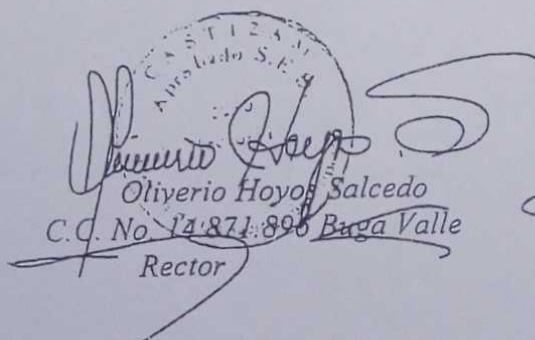 CASTIZAM
Aprobado S.E.
Oliverio Hoyos Salcedo
C.C. No. 14.871.896 Buga Valle
Rector